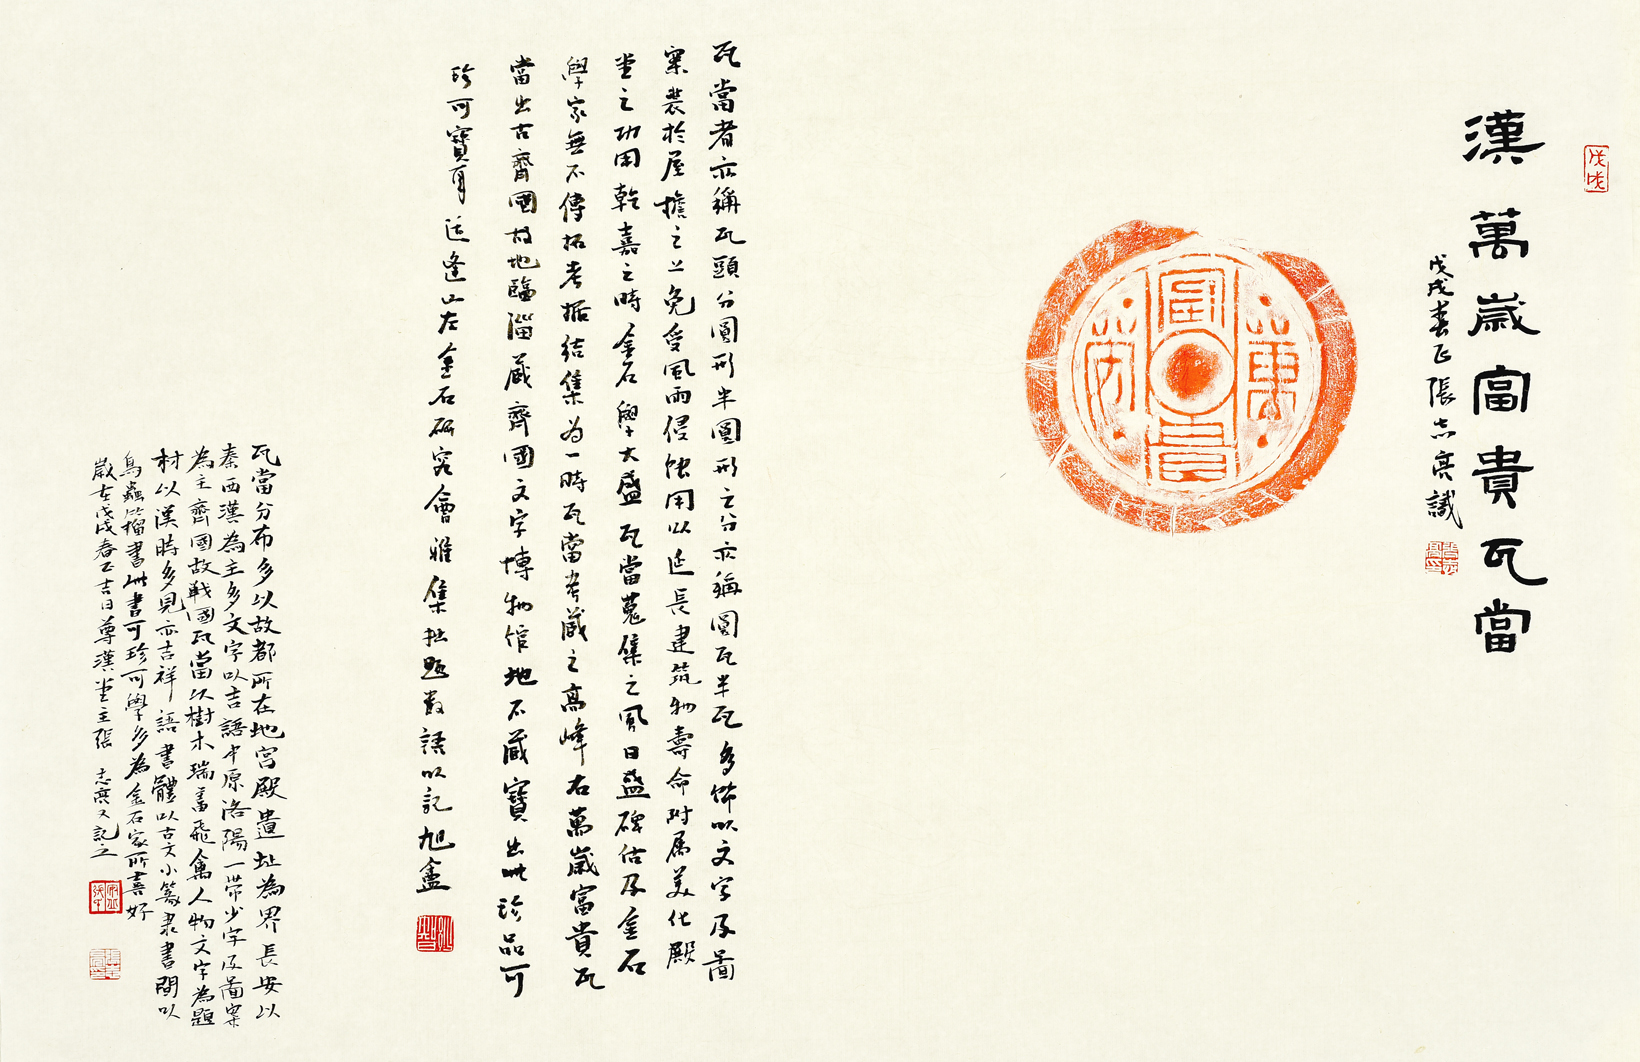 戊戌
漢萬歲富貴瓦當
戊戌春正張志亮識
萬歲富貴
瓦當者亦稱瓦頭分圓形半圓形之分亦稱圓瓦半瓦多飾以文字及圖
案裝於屋擔之上免受風雨侵蝕用以延長建筑物壽命附属美化殿
堂之功用乾嘉之時金石學大盛瓦當蒐集之風日盛碑估及金石
學家無不傳拓考據結集為一時瓦當考藏之高峰右萬歲富貴瓦
當出古齊國故地臨淄藏齊國文字博物馆地不藏寶出此珍品可
珍可寶月逢山左金石研究會雅集拙題數語以記旭盦
瓦當分布多以故都所在地宫殿遺址為界長安以
秦西漢為主多文字以吉語中原洛陽一带少字及圖案
為主齊國故戰國瓦當以樹木瑞畜飛禽人物文字為題
材以漢時多見亦吉祥語書體以古文小篆隶書間以
鳥蟲此榴書此書可珍可學多為金石家所喜好
歲在戊戌春正吉日尊漢堂主張志亮又記之